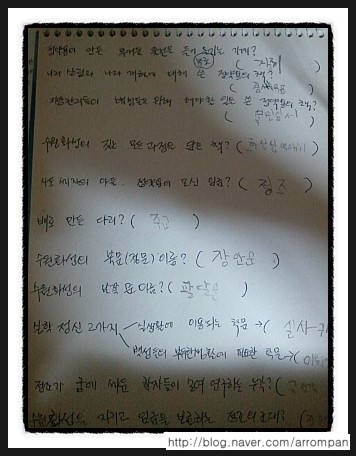 정약용이 만든 무거운 물건을 들어 올리는 기계?
(거중기)
나라 살림과 나라 개혁에 대해 쓴 정약용의 책?
(경세유표)
지방관리들이 백성들을 위해 해야할 일을 쓴 정약용의 책?
(목민심서)
수원화성의 짓는 모든 과정을 담은 책? (
사도세자의 아들. 정약용이 모신 임금? (정조)
배로 만든 다리? (주교)
수원화성의 북문(정문) 이름? (장안문)
수원화성의 남쪽 문 이름? (팔달문)
실학 정신 2가지
실생활에 이용되는 학문 → (실사구
백성들의 부유한 생활에 필요한 학문 → (이용
정조가 궁에 세운 학자들이 모여 연구하는 누각? (규장각
수원화성을 지키고 임금을 보호하는 정조의 군대? (
http://blog.naver.com/arrompan